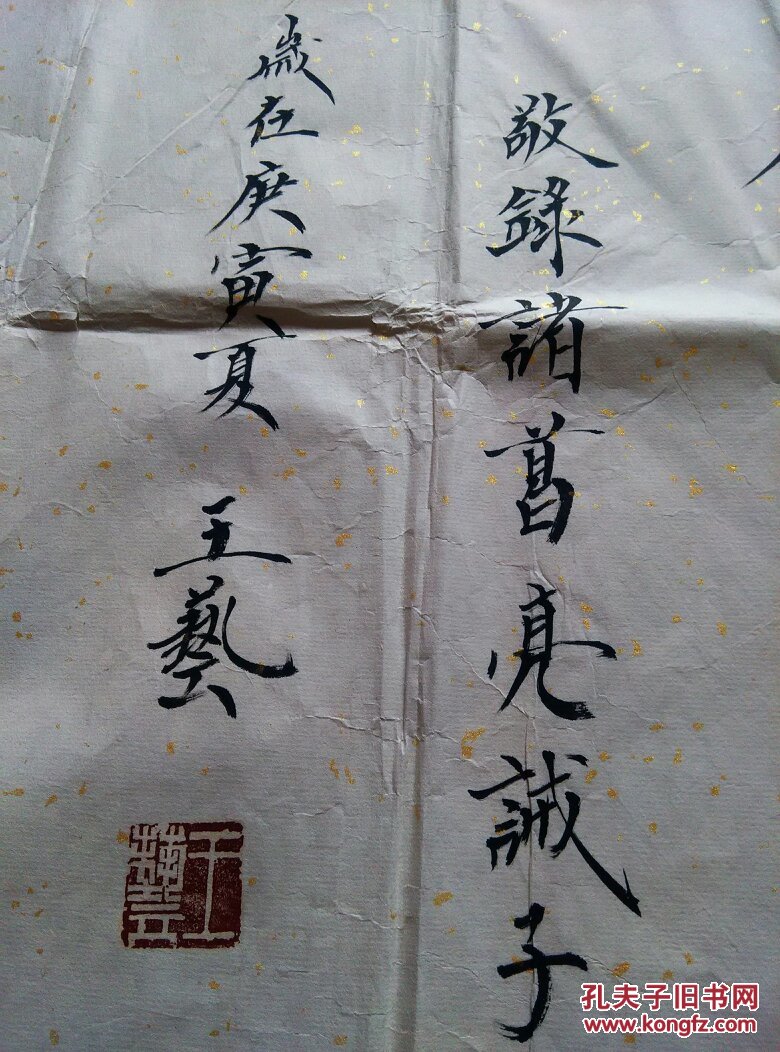 敬錄諸葛亮誡子
歲在庚寅夏 王藝
王藝
孔夫子旧书网
www.kongfz.com